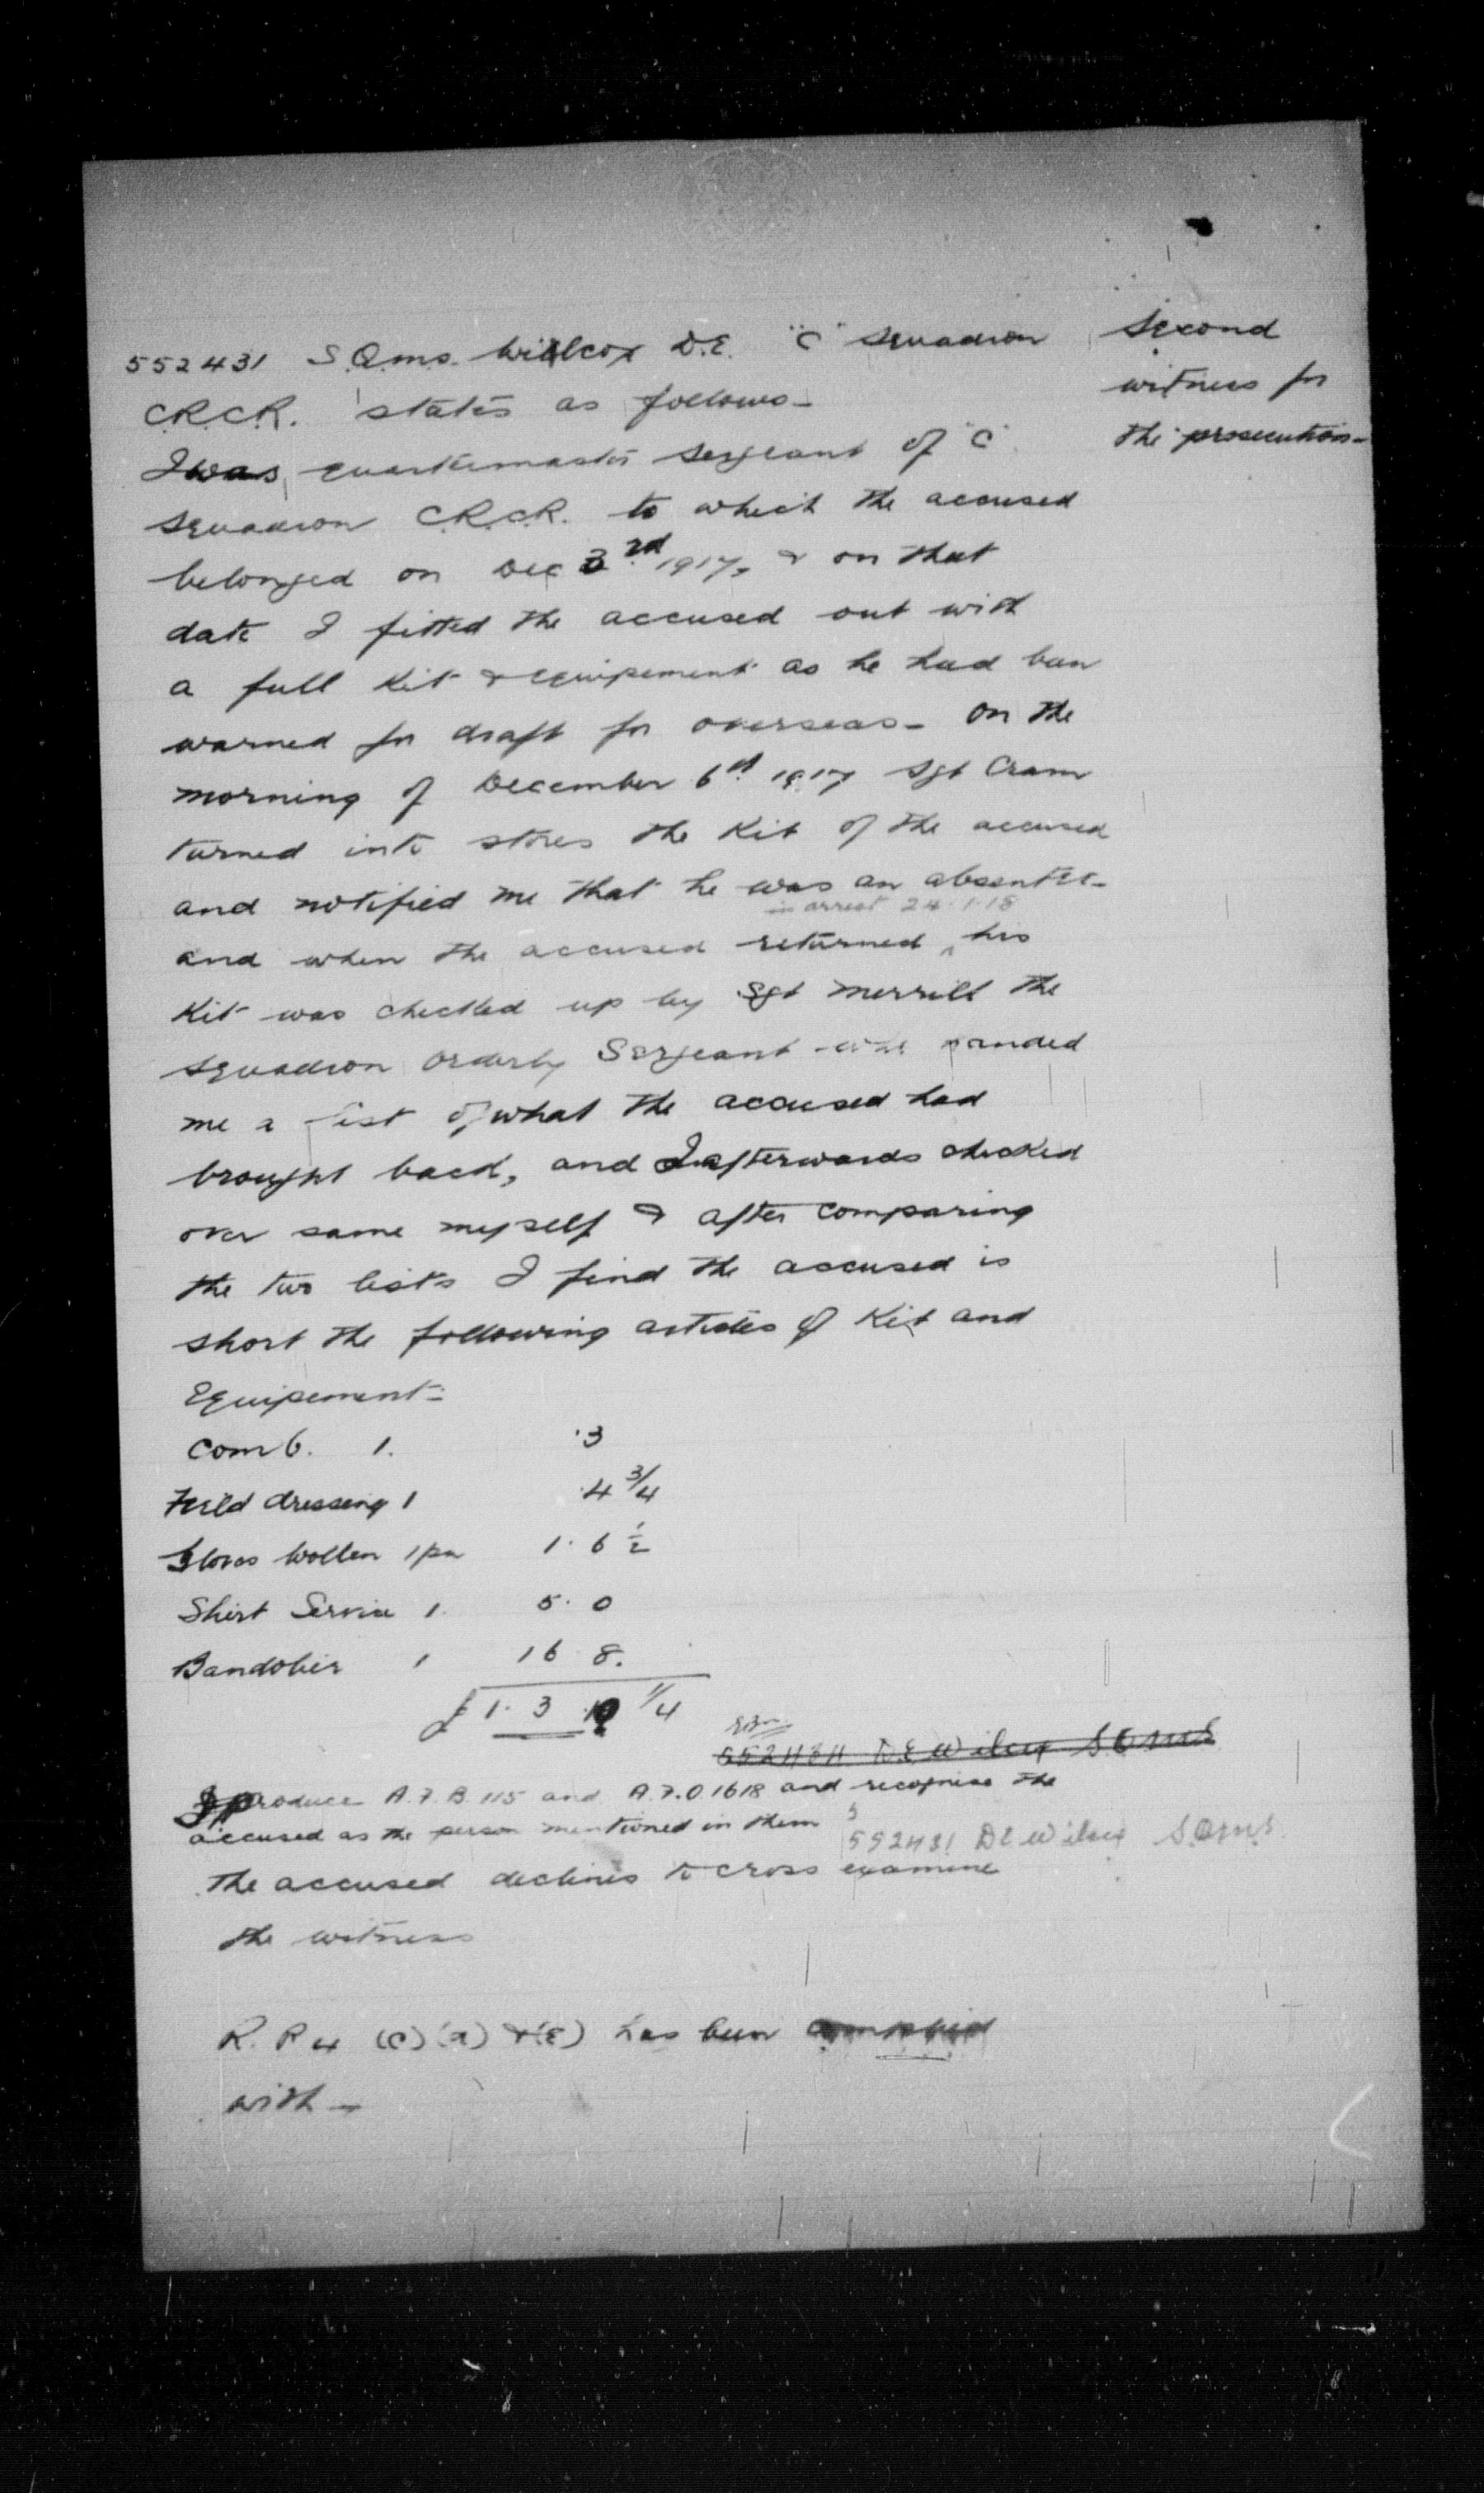 552431 S.Q.M.S. Willcox D.E. "C" Squadron
C.R.C.R. states as follows -
I was quartermaster sergeant of "C"
Squadron C.R.C.R. to which the accused
belonged on Dec 3rd 1917, & on that
date I fitted the accused out with
a full Kit & equipement as he had been
warned for draft for overseas - On the
morning of December 6th 1917 Sgt Cram
turned into stores the Kit of the accused
and notified me that he was an absentee -
in arrest 24.1.18
and when the accused returned ^ his
Kit was checked up by Sgt Merrill the
Squadron Orderly Sergeant who handed
me a list of what the accused had
brought back, and I afterwards checked
over same myself & after comparing
the two lists I find the accused is
short the following articles of Kit and
Equipement:-
Comb. 1. .3
Field dressing 1 .4 3/4
Gloves Wollen 1 pr 1. 6 1/2
Shirt Service 1. 5. 0
Bandolier 1 16 8.
£ 1. 3 10 1/4
552431 D.E. Wilcox S.Q.M.S
I produce A.F.B. 115 and A.F.O. 1618 and recognise the
accused as the person mentioned in them
552431 D E Wilcox S.Q.M.S.
The accused declines to cross examine
the witness
R. P 4 (C) (D) & (E) has been complied
with -
Second
witness for
the prosecution -